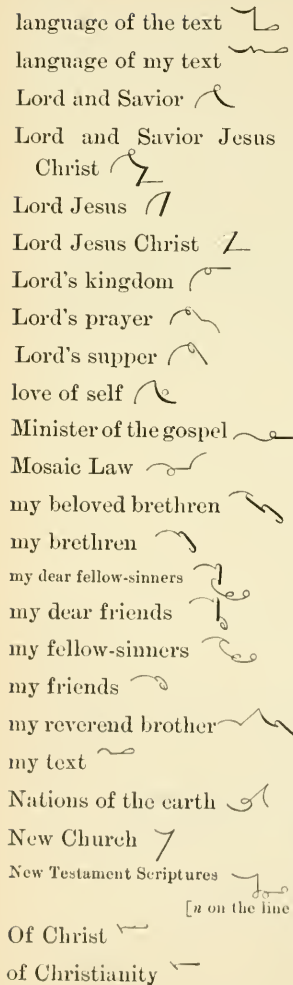 language of the text
language of my text
Lord and Savior
Lord and Savior Jesus
Christ
Lord Jesus
Lord Jesus Christ
Lord's kingdom
Lord's prayer
Lord's supper
love of self
Minister of the gospel
Mosaic Law
my beloved brethren
my brethren
my dear fellow-sinners
my dear friends
my fellow-sinners
my friends
my reverend brother
my text
Nations of the earth
New Church
New Testament Scriptures
[n on the line
Of Christ
of Christianity